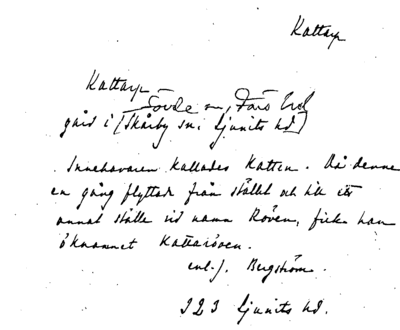 Kattarp
Kattarp
Sövde sn, Färs hd
gård i [Skårby sn. Ljunits hd]
Innehavaren kallades Katten. Då denne
en gång flyttade från stället och till ett
annat ställe vid namn Röven, fick han
öknamnet Kattaröven.
enl. J. Bergström.
323 Ljunits hd.